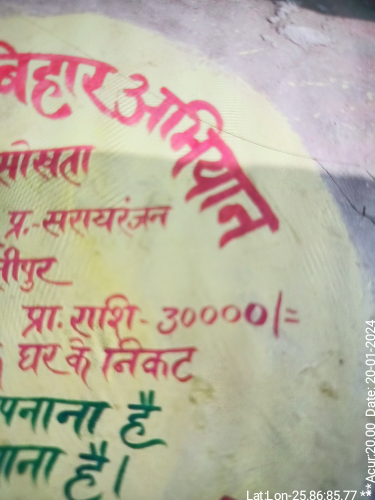 बिहार अभियान
सोखता
प्र.-सरायरंजन
तीपुर
प्रा. राशि- 30000/=
घर के निकट
पनाना है
है।
Lat:Lon-25.86:85.77 *** Acur:20.00 Date: 20-01-2024